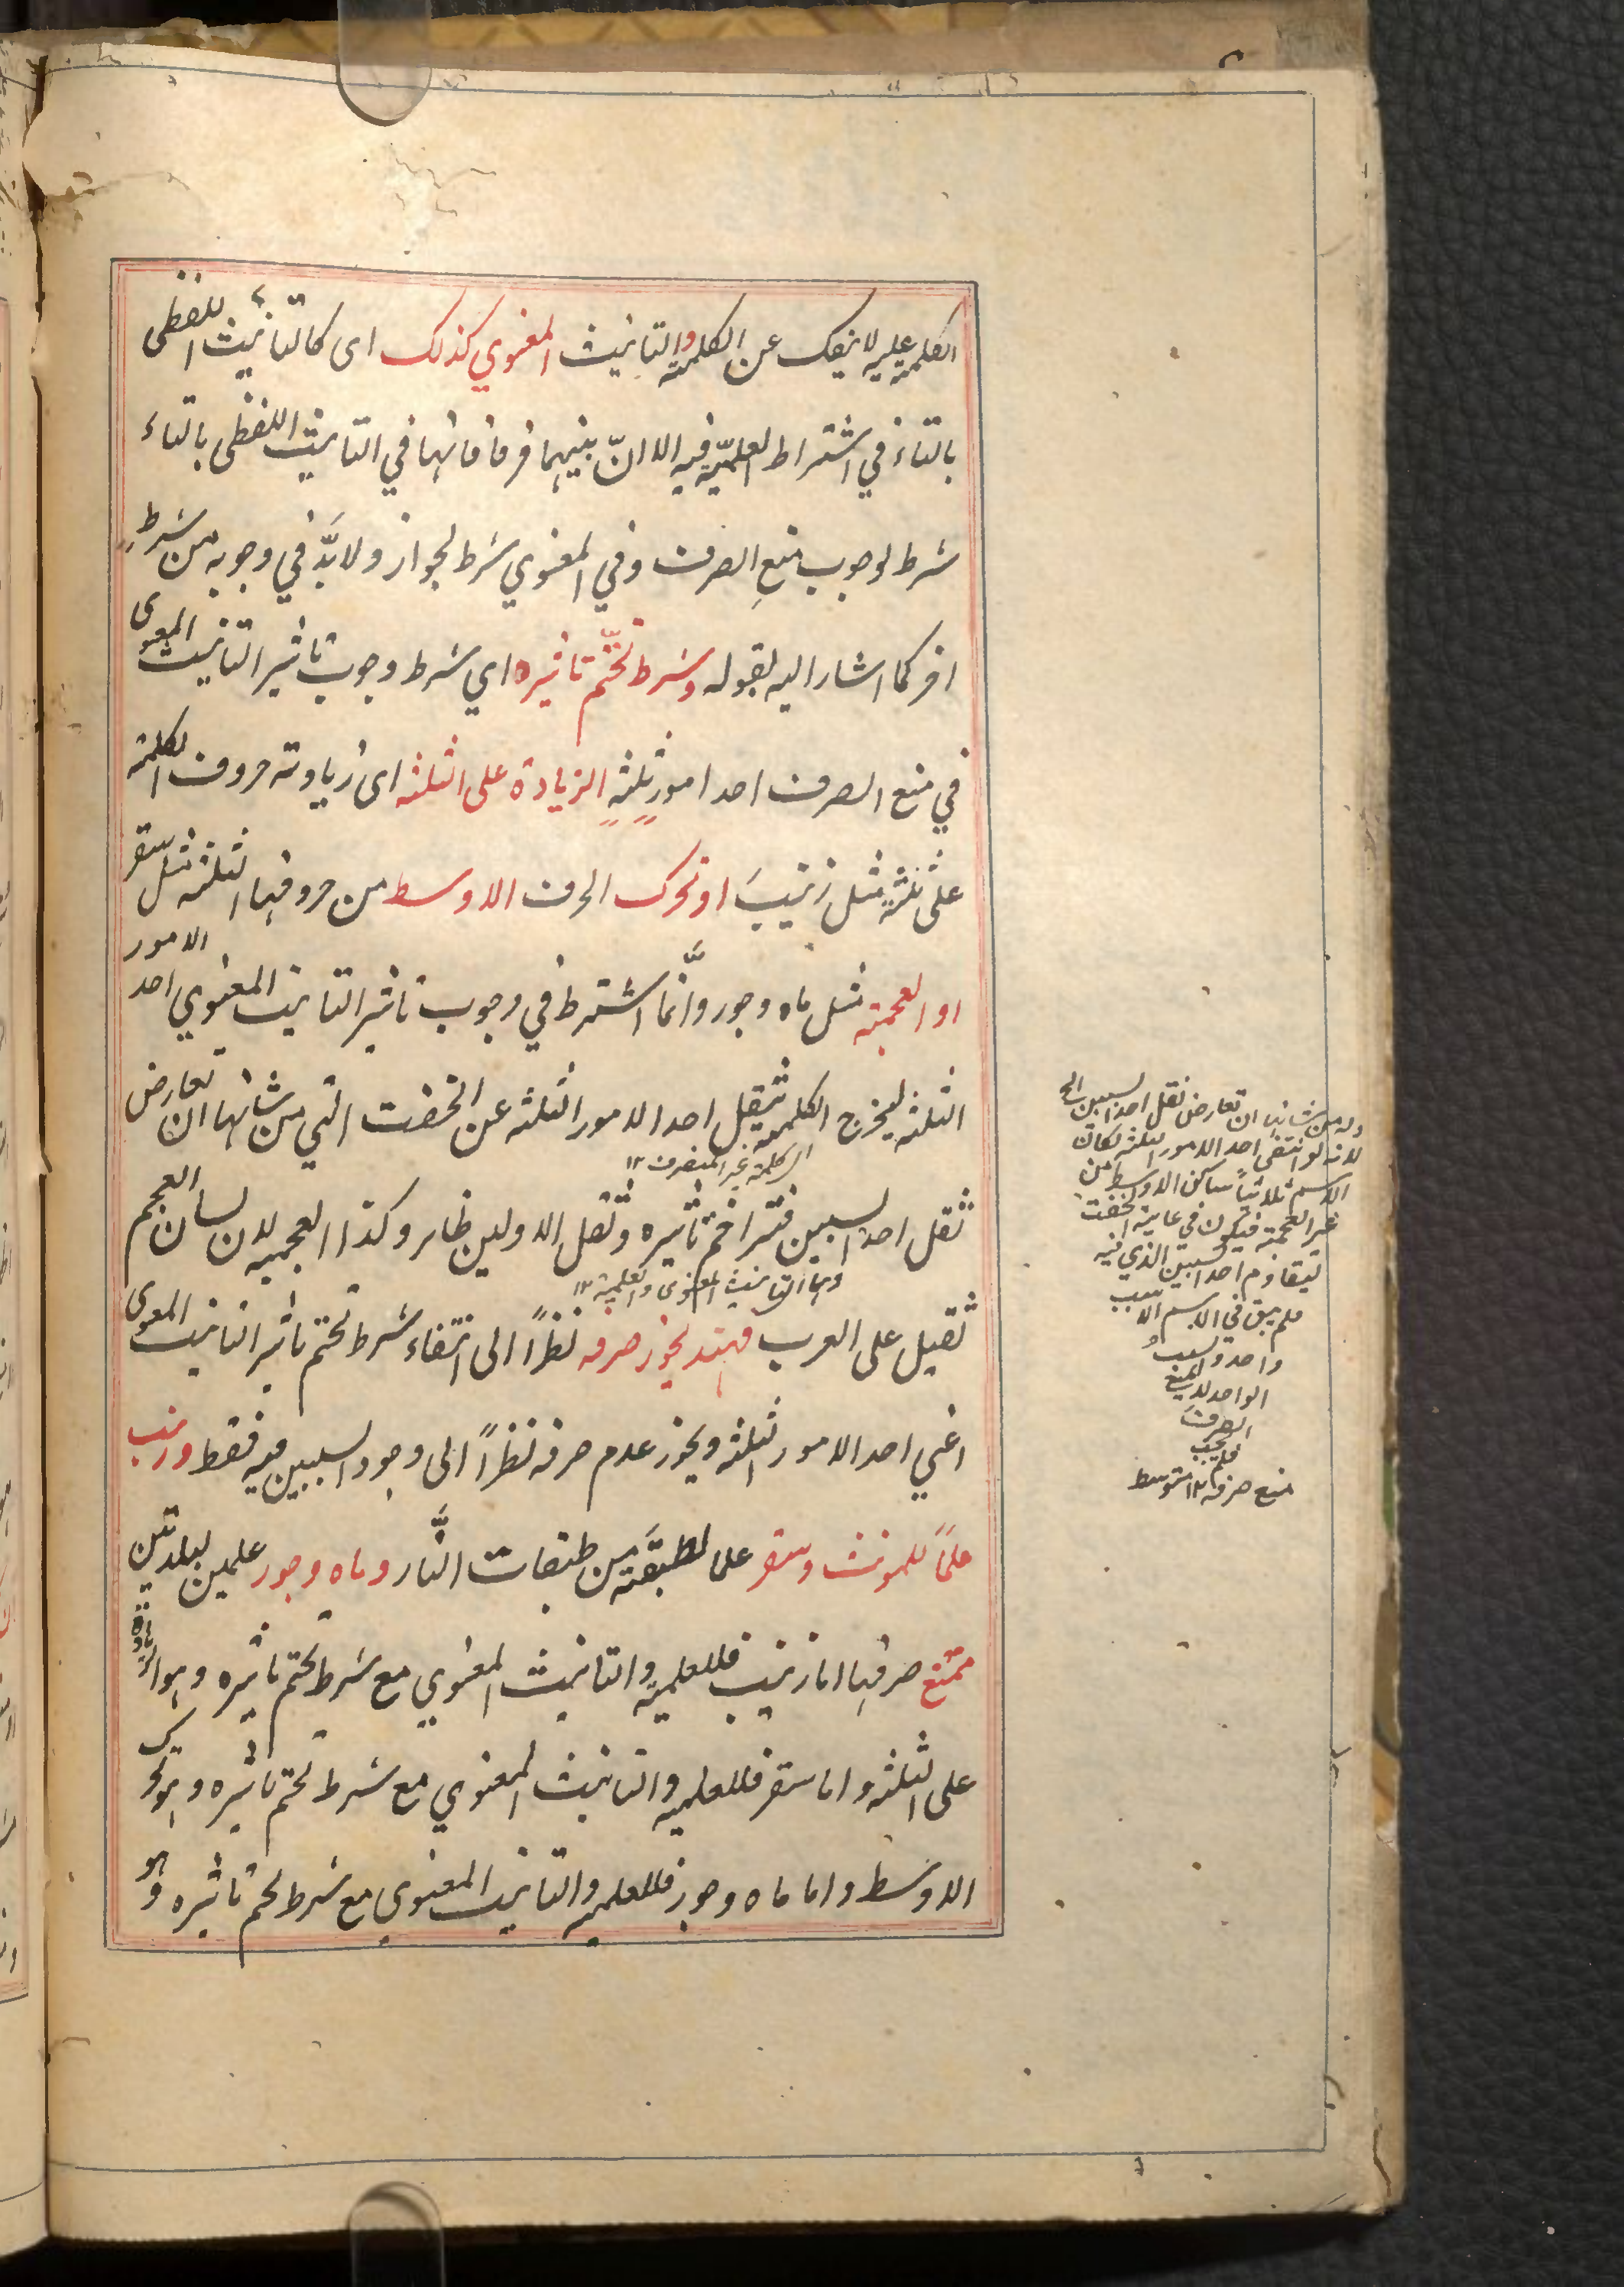 الكلمة عليه لا ينفك عن الكلمة والتانيث المعنوي كذلك اى كالتانيث اللفظى
بالتاء في اشتراط العلميّة فيه الا انّ بينهما فرقا فانها في التانيث اللفظى بالتاء
شرط لوجوب منعِ الصرف وفي المعنوي شرط لجوازه ولا بدَّ في وجوبه من شرطٍ
اخر كما اشار اليه بقوله وشرط تحتّم تاثيره اي شرط وجوب تاثير التانيث المعنوى
في منع الصرف احد امورٍ ثلثةٍ الزيادة على الثلثه اى زيادة حروف الكلمة
على ثلثةٍ مثل زينبَ او تحرك الحرف الاوسط من حروفها الثلثه مثل سقر
او العجمة مثل ماه وجور وانَّما اشترط في وجوب تاثير التانيث المعنوي احد الامور
الثلثه ليخرج الكلمة بثقل احد الامور الثلثه عن الخفت التي من شانها ان تعارض
الكلمة غير المنصرف ١٢
ثقل احد السببين فتزاحم تاثيره وثقل الاولين ظاهر وكذا العجمه لان لسان العجم
وهما التانيث المعنوى والعلمية ١٢
ثقيل على العرب فهند يجوز صرفه نظراً الى انتفاء شرط تحتم تاثير التانيث المعنوى
اعني احد الامور الثلثه ويجوز عدم صرفه نظراً الى وجود السببين فيه فقط وزينب
علمًا للمونث وسقر علما لطبقَة من طبقات النَّار وماه وجور علمين لبلدتين
ممتنع صرفها اما زينب فللعلمية والتانيث المعنوي مع شرط تحتم تاثيره وهو الزيادة
على الثلثه واما سقر فللعلميه والتانيث المعنوي مع شرط تحتم تاثيره وهو تحرك
الاوسط واما ماه وجور فللعلميه والتانيث المعنوي مع شرط تحتم تاثيره وهو
من شانها ان تعارض ثقل احد السببين الخ
لانه لو انتفى احد الامور الثلثه لكان
الاسم ثلاثياً ساكن الاوسط من
غير العجمة فيكون في غاية الخفت
ليقاوم احد السببين الذي فيه
فلم يبق في الاسم الا سبب
واحد والسبب
الواحد لا يمنع
الصرف
فلم يجب
منع صرفه ١٢ متوسط